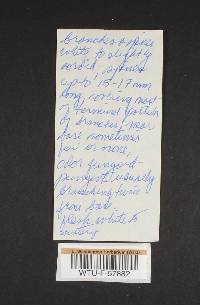 branches & spines
white to slightly
sordid, spines
up to 15-17 mm
long covering most
of terminal portion
of branches, near
base sometimes
fur or more.
Odor fungoid-
pungent, usually
branching twice
from base
Flesh white to
watery
WTU-F-57882